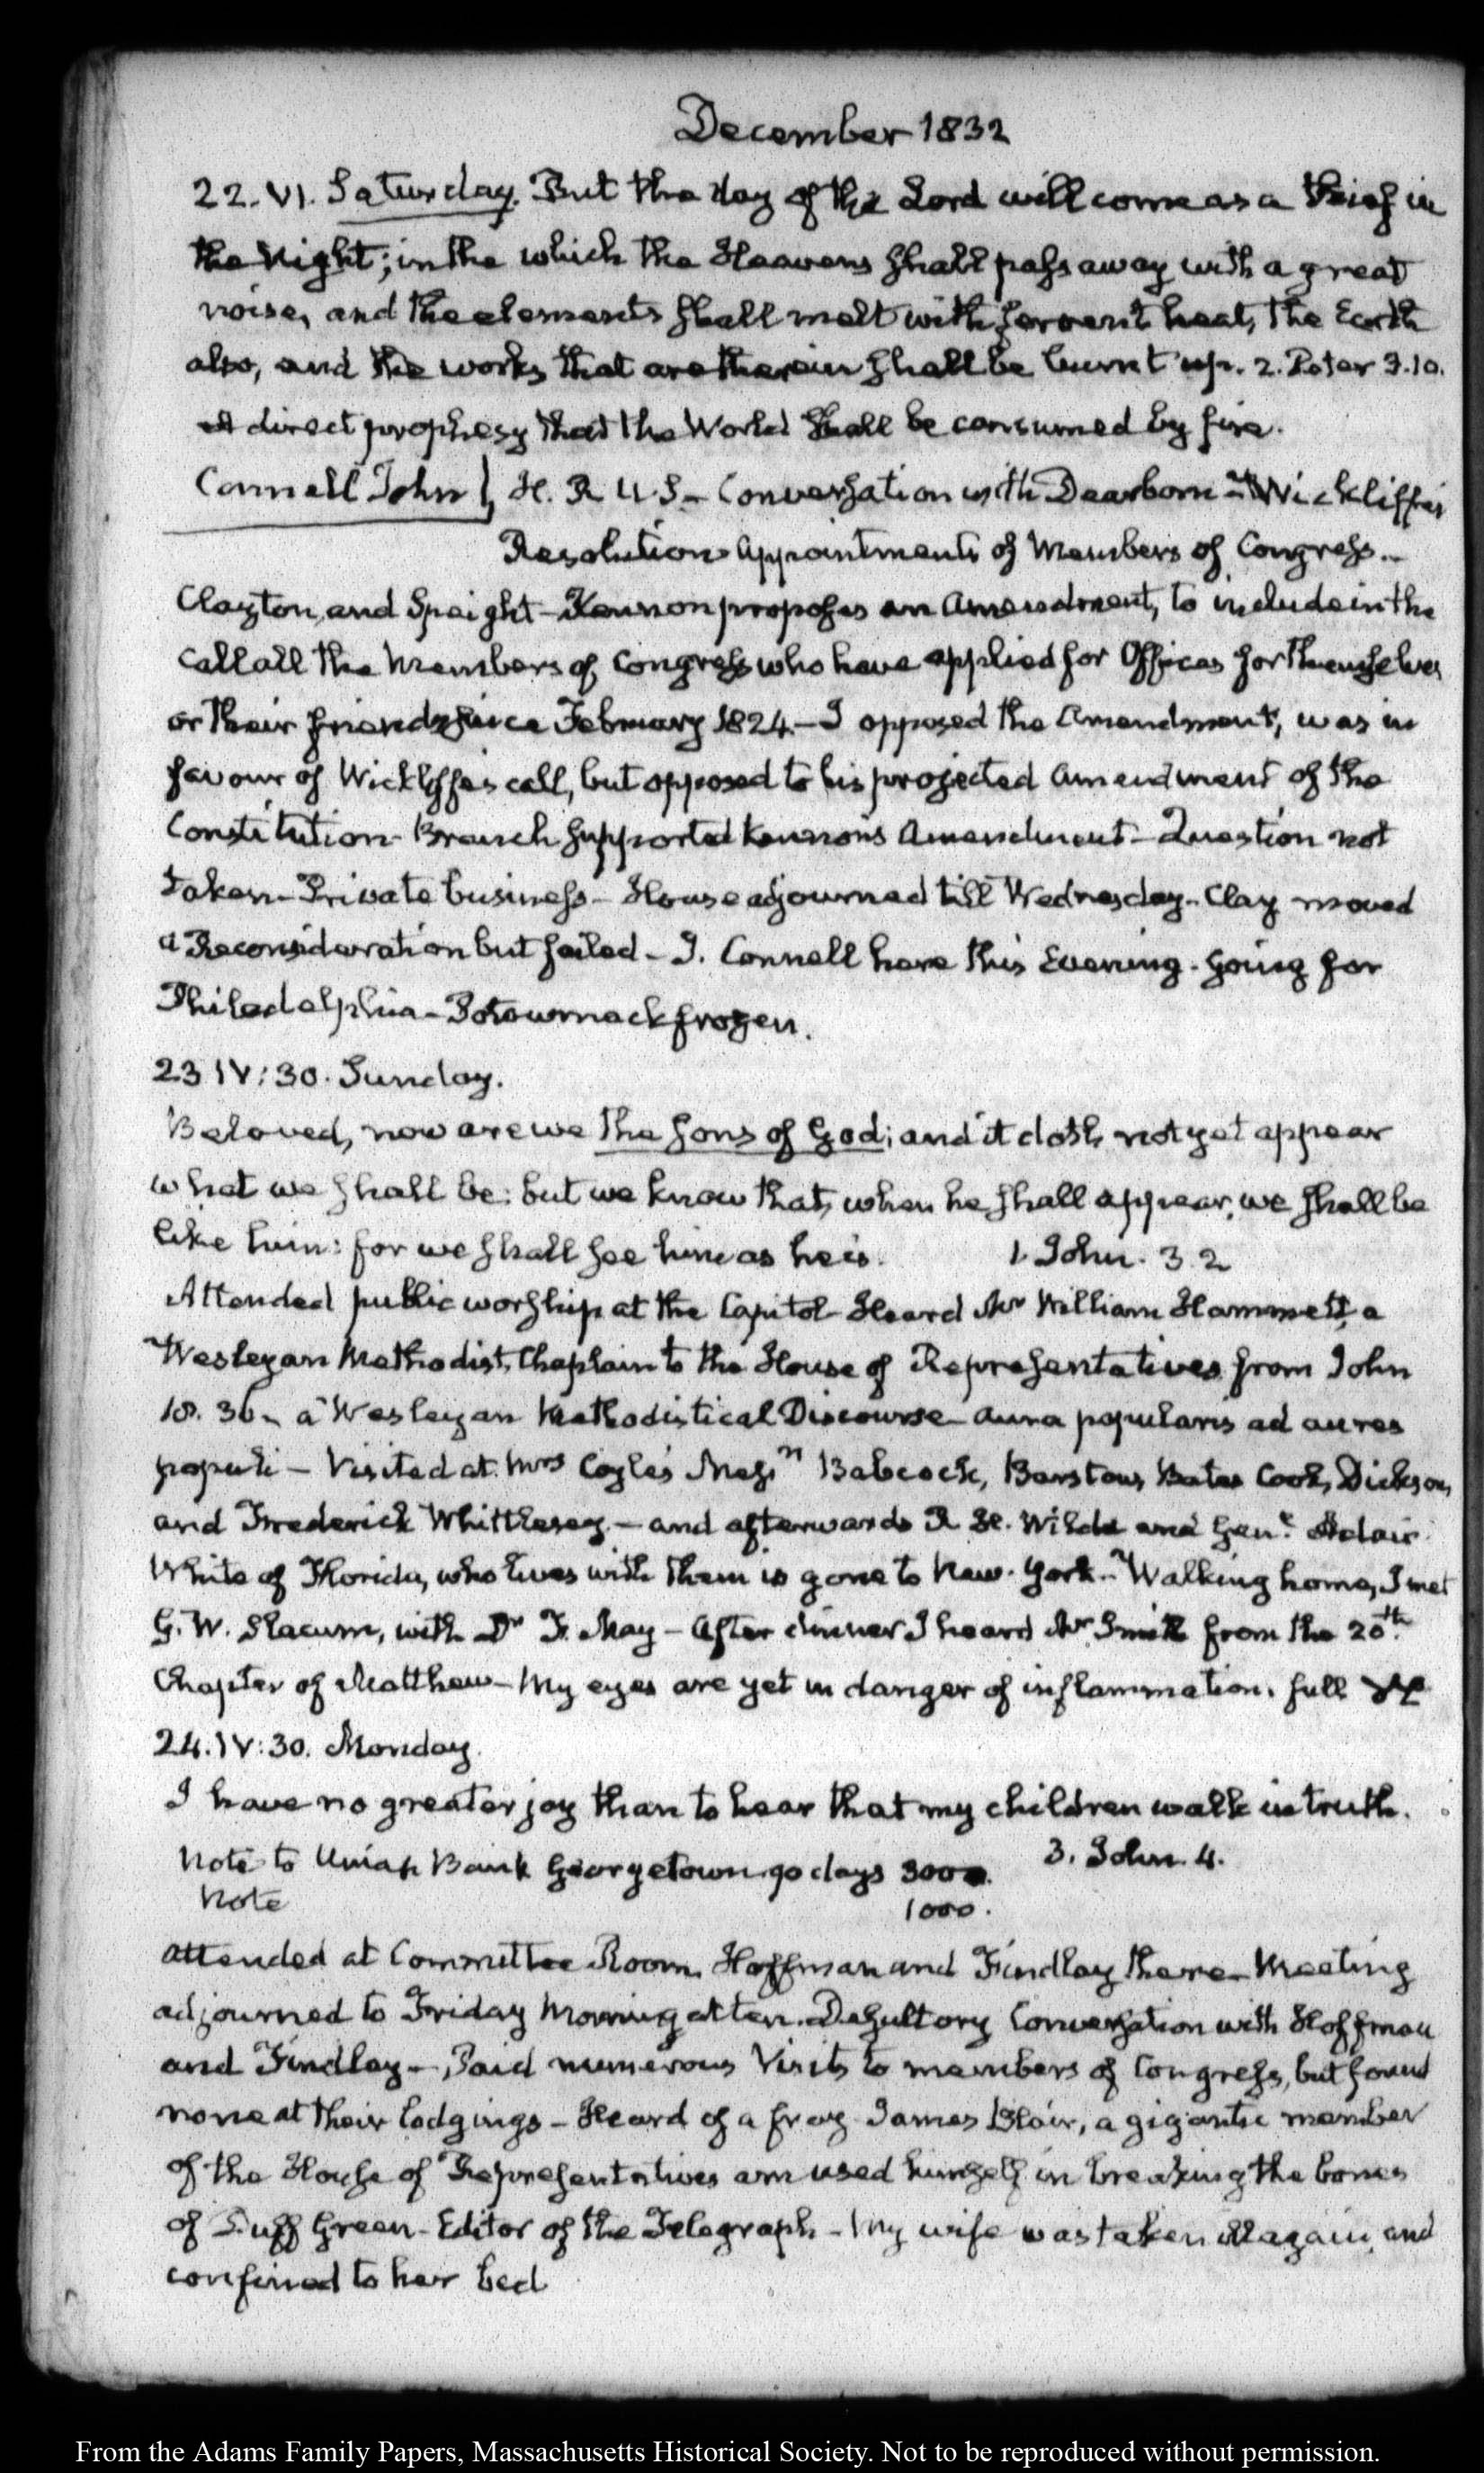 December 1832
22. VI. Saturday. But the day of the Lord will come as a thief in
the Night; in the which the Heavens shall pass away with a great
noise, and the elements shall melt with fervent heat, the Earth
also, and the works that are therein shall be burnt up. 2. Peter 3.10.
A direct prophesy that the World shall be consumed by fire.
Connell John } H. R. U.S. – Conversation with Dearborn – Wickliffe's
Resolution appointments of Members of Congress. –
Clayton, and Speight – Kennon proposes an Amendment, to include in the
call all the Members of Congress who have applied for Offices for themselves
or their friends since February 1824 – I opposed the Amendment, was in
favour of Wickliffe's call, but opposed to his projected Amendment of the
Constitution – Branch supported Kennon's Amendment – Question not
taken – Private business – House adjourned till Wednesday – Clay moved
a Reconsideration but failed – J. Connell here this Evening – going for
Philadelphia – Potowmack frozen.
23 IV:30. Sunday.
Beloved, now are we the sons of God; and it doth not yet appear
what we shall be: but we know that, when he shall appear, we shall be
like him: for we shall see him as he is. 1. John. 3. 2
Attended public worship at the Capitol – Heard Mr William Hammett, a
Wesleyan Methodist, Chaplain to the House of Representatives from John
18. 36 – a Wesleyan Methodistical Discourse – aura popularis ad aures
populi – Visited at Mrs Coyle's Messrs Babcock, Barstow, Bates Cook, Dickson,
and Frederick Whittlesey – and afterwards R. H. Wilde and Genl Adair.
White of Florida, who lives with them is gone to New-York – Walking home, I met
G. W. Slacum, with Dr F. May – After dinner I heard Mr Smith from the 20th
Chapter of Matthew – My eyes are yet in danger of inflammation. full
24. IV:30. Monday.
I have no greater joy than to hear that my children walk in truth.
3. John. 4.
Note to Union Bank Georgetown 90 days 3000.
Note 1000.
Attended at Committee Room. Hoffman and Findlay there – Meeting
adjourned to Friday Morning at ten. Desultory Conversation with Hoffman
and Findlay – Paid numerous Visits to members of Congress, but found
none at their lodgings – Heard of a fray James Blair, a gigantic member
of the House of Representatives amused himself in breaking the bones
of Duff Green – Editor of the Telegraph – My wife was taken ill again, and
confined to her bed
From the Adams Family Papers, Massachusetts Historical Society. Not to be reproduced without permission.